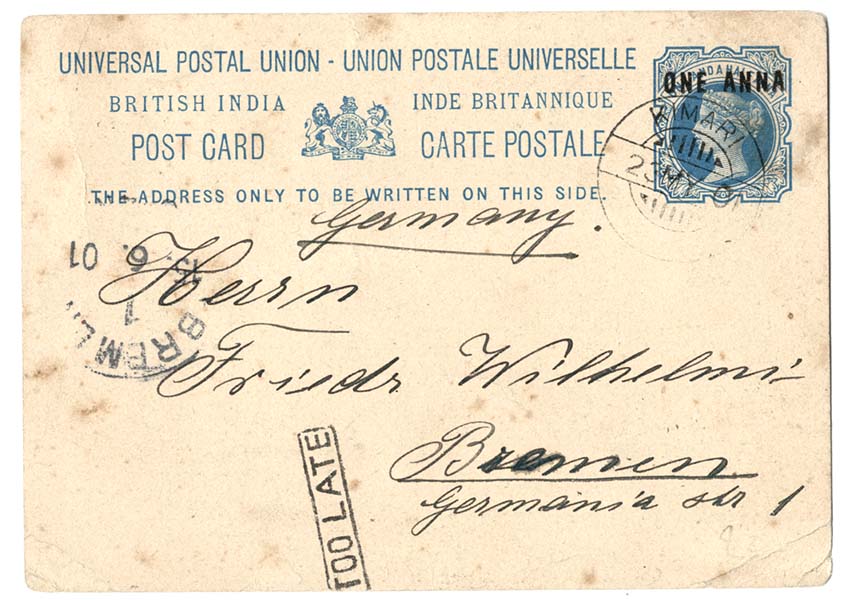 UNIVERSAL POSTAL UNION - UNION POSTALE UNIVERSELLE
BRITISH INDIA INDE BRITANNIQUE
POST CARD CARTE POSTALE
THE ADDRESS ONLY TO BE WRITTEN ON THIS SIDE.
ONE ANNA
23 MY 01
Germany.
Herrn
Friedr Wilhelmi
Bremen
Germania str 1
BREMEN
1
6. 01
TOO LATE